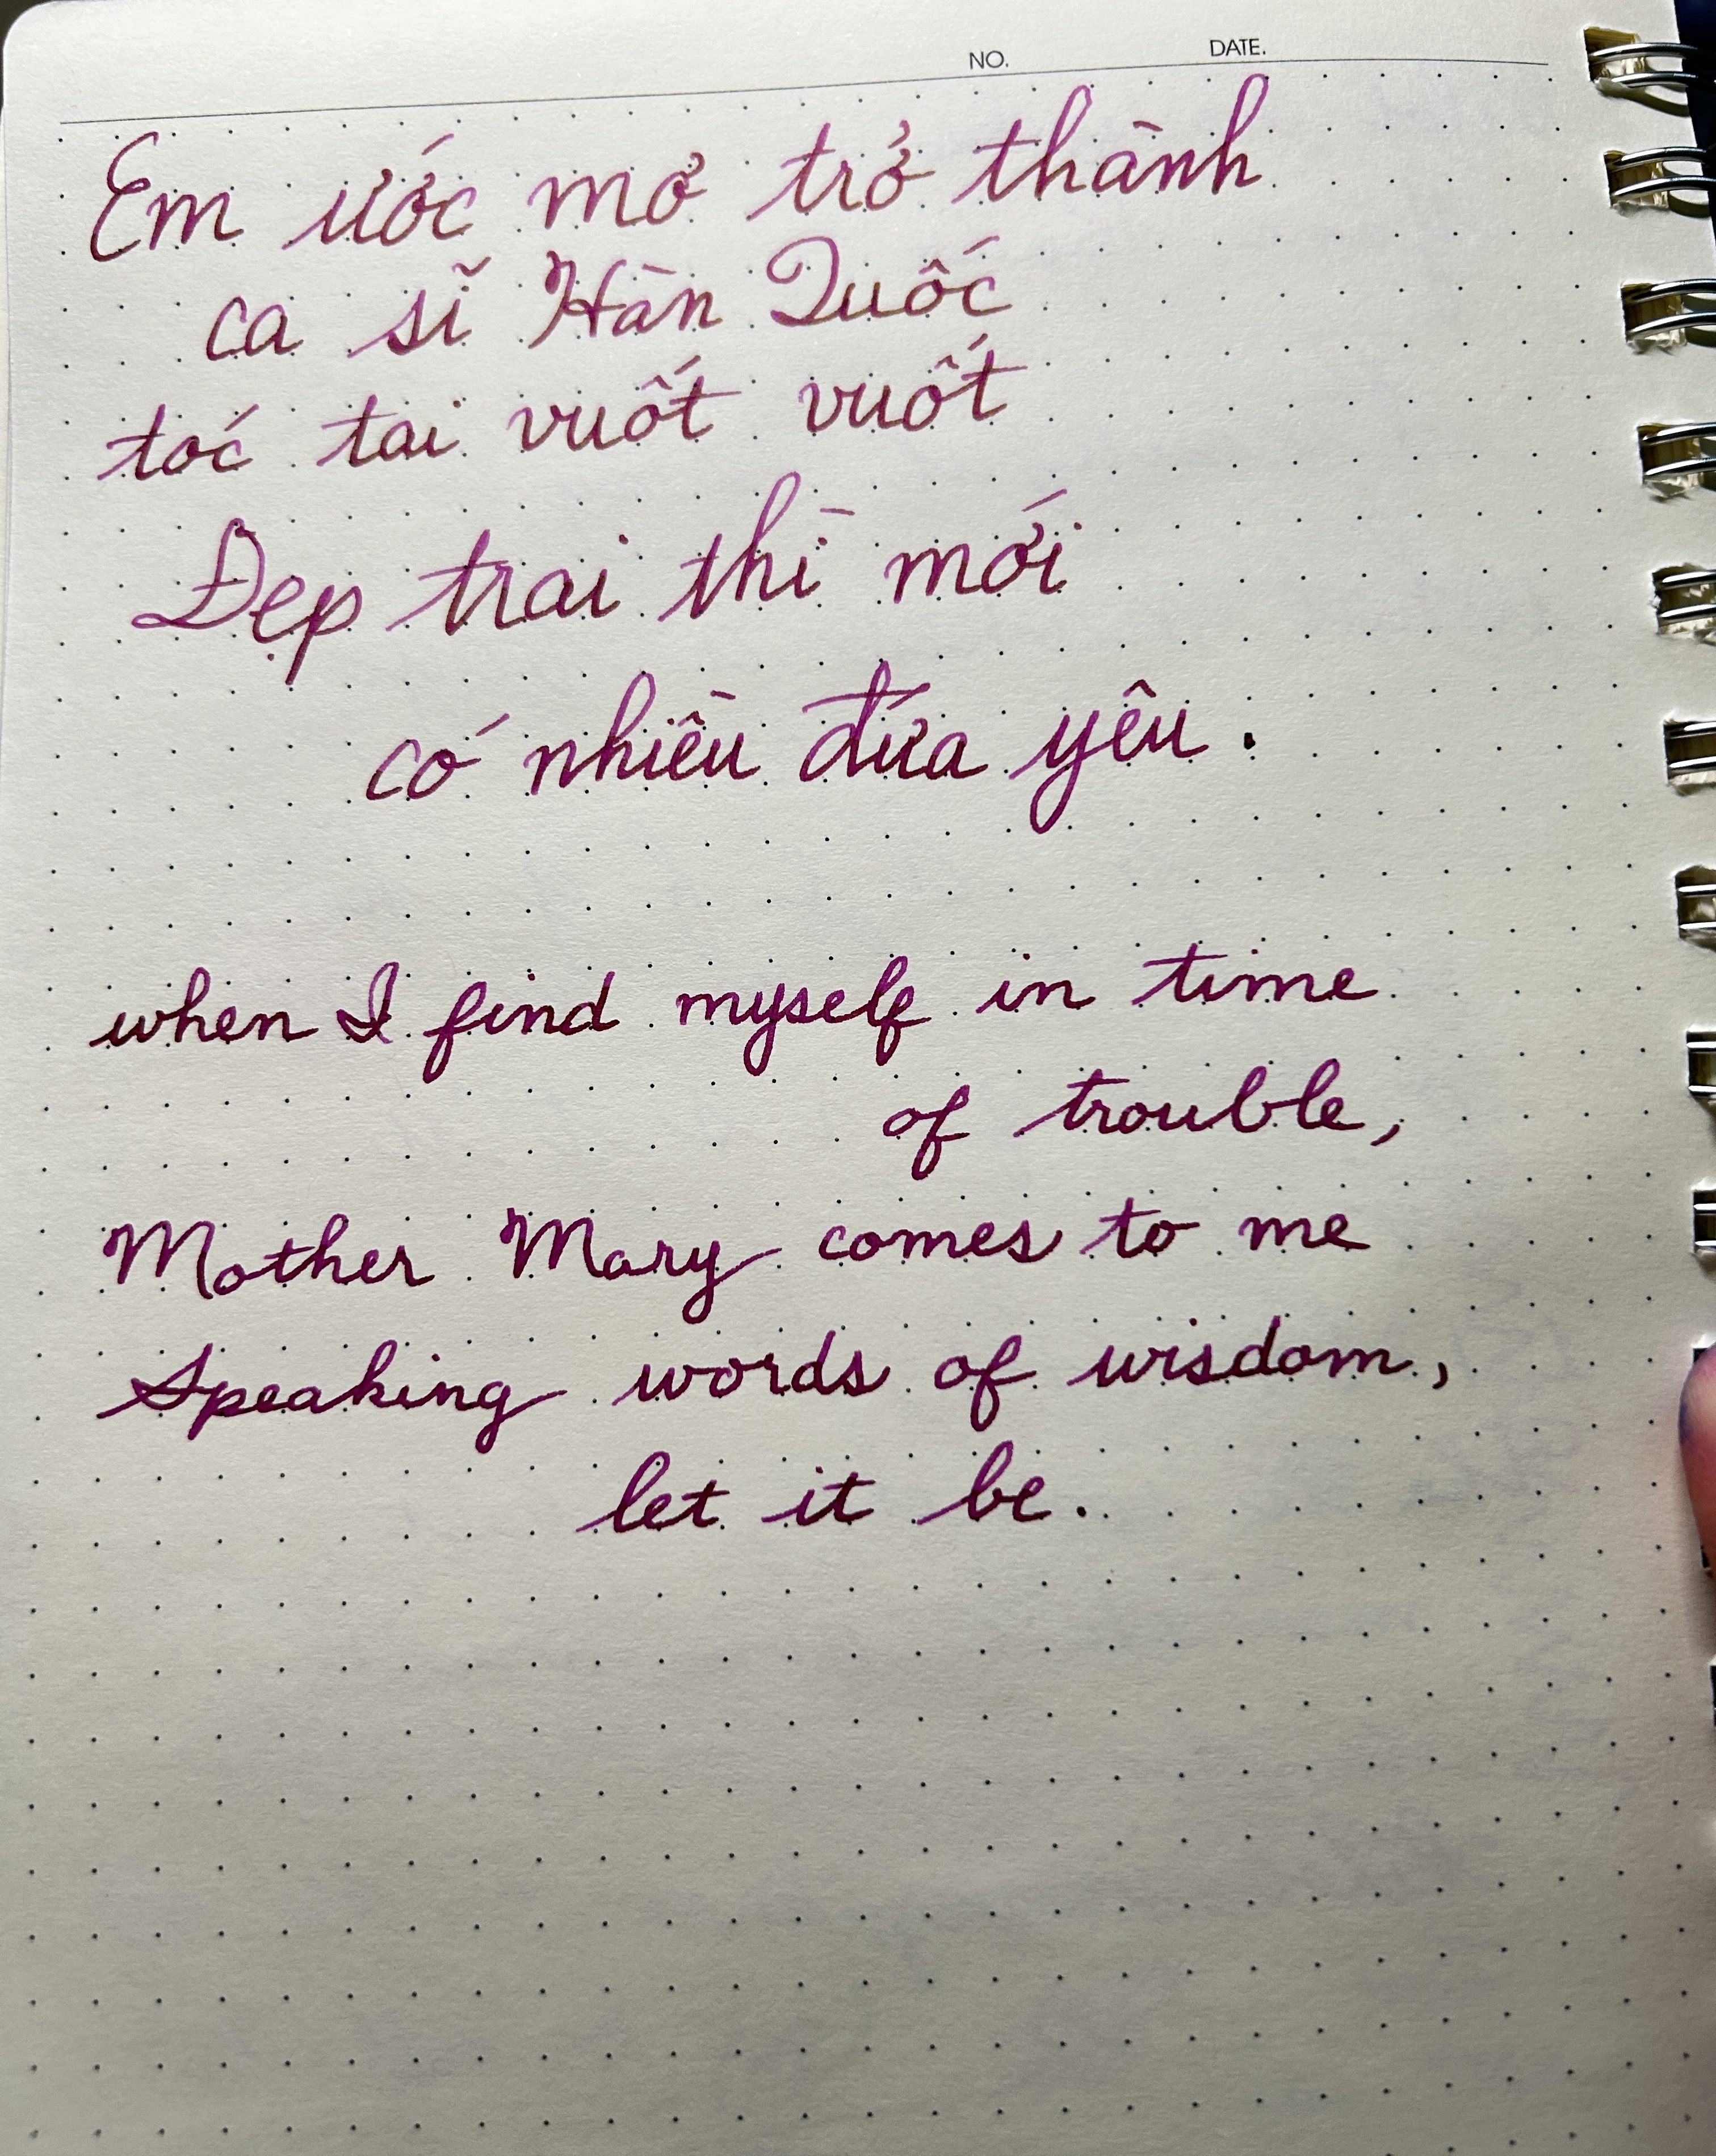 NO. DATE.
Em ước mơ trở thành
ca sĩ Hàn Quốc
tóc tai vuốt vuốt
Đẹp trai thì mới
có nhiều đứa yêu.
when I find myself in time
of trouble,
Mother Mary comes to me
Speaking words of wisdom,
let it be.